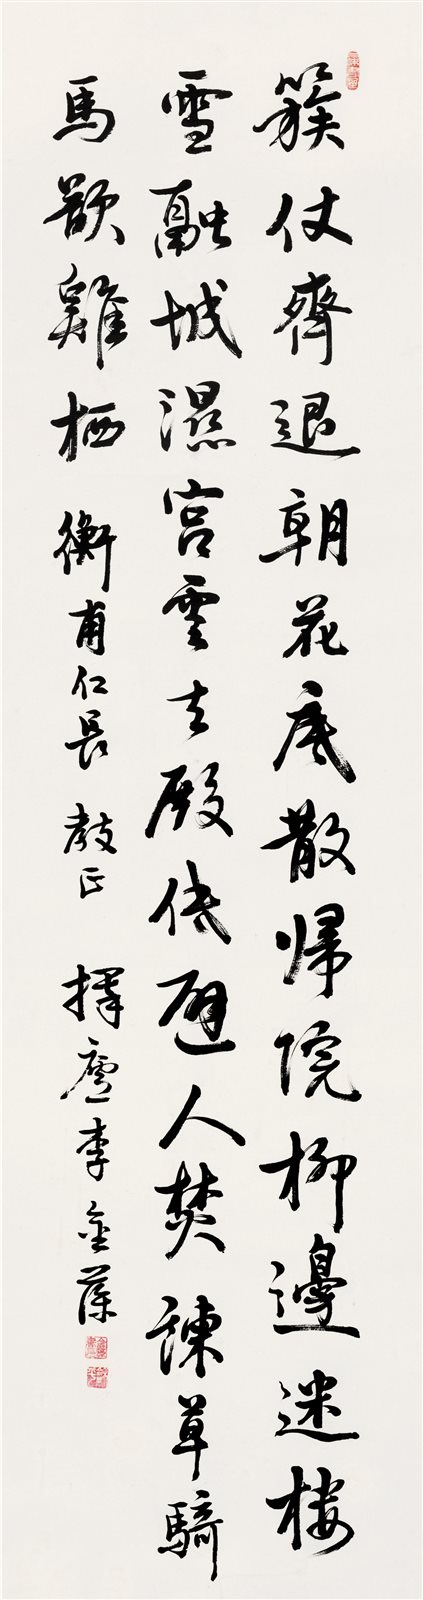 簇仗齊退朝花底散帰院柳邊迷樓
雪融城濕宮雲去殿低避人焚諫草騎
馬欲雞栖 衡甫仁長 教正 擇廬李金藻